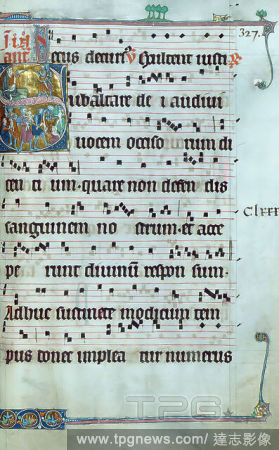 327.
Sub altare dei audivi
vocem occisorum di
cen ci um. quare non defen dis
sanguinem no strum. et acce
pe runt divinum respon sum.
Adhuc sustinete modicum tem
pus donec implea tur numerus
Clxxx
TPG
www.tpgnews.com / 達志影像